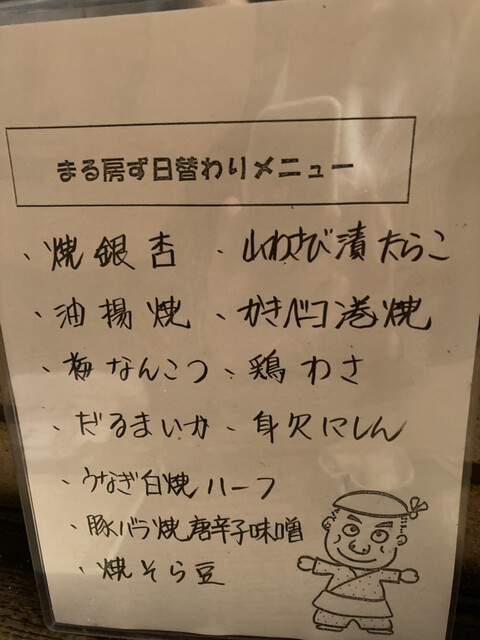 まる房ず日替わりメニュー
・焼銀杏 ・山わさび漬たらこ
・油揚焼 ・かきベーコン巻焼
・梅なんこつ ・鶏わさ
・だるまいか ・身欠にしん
・うなぎ白焼ハーフ
・豚バラ焼唐辛子味噌
・焼そら豆